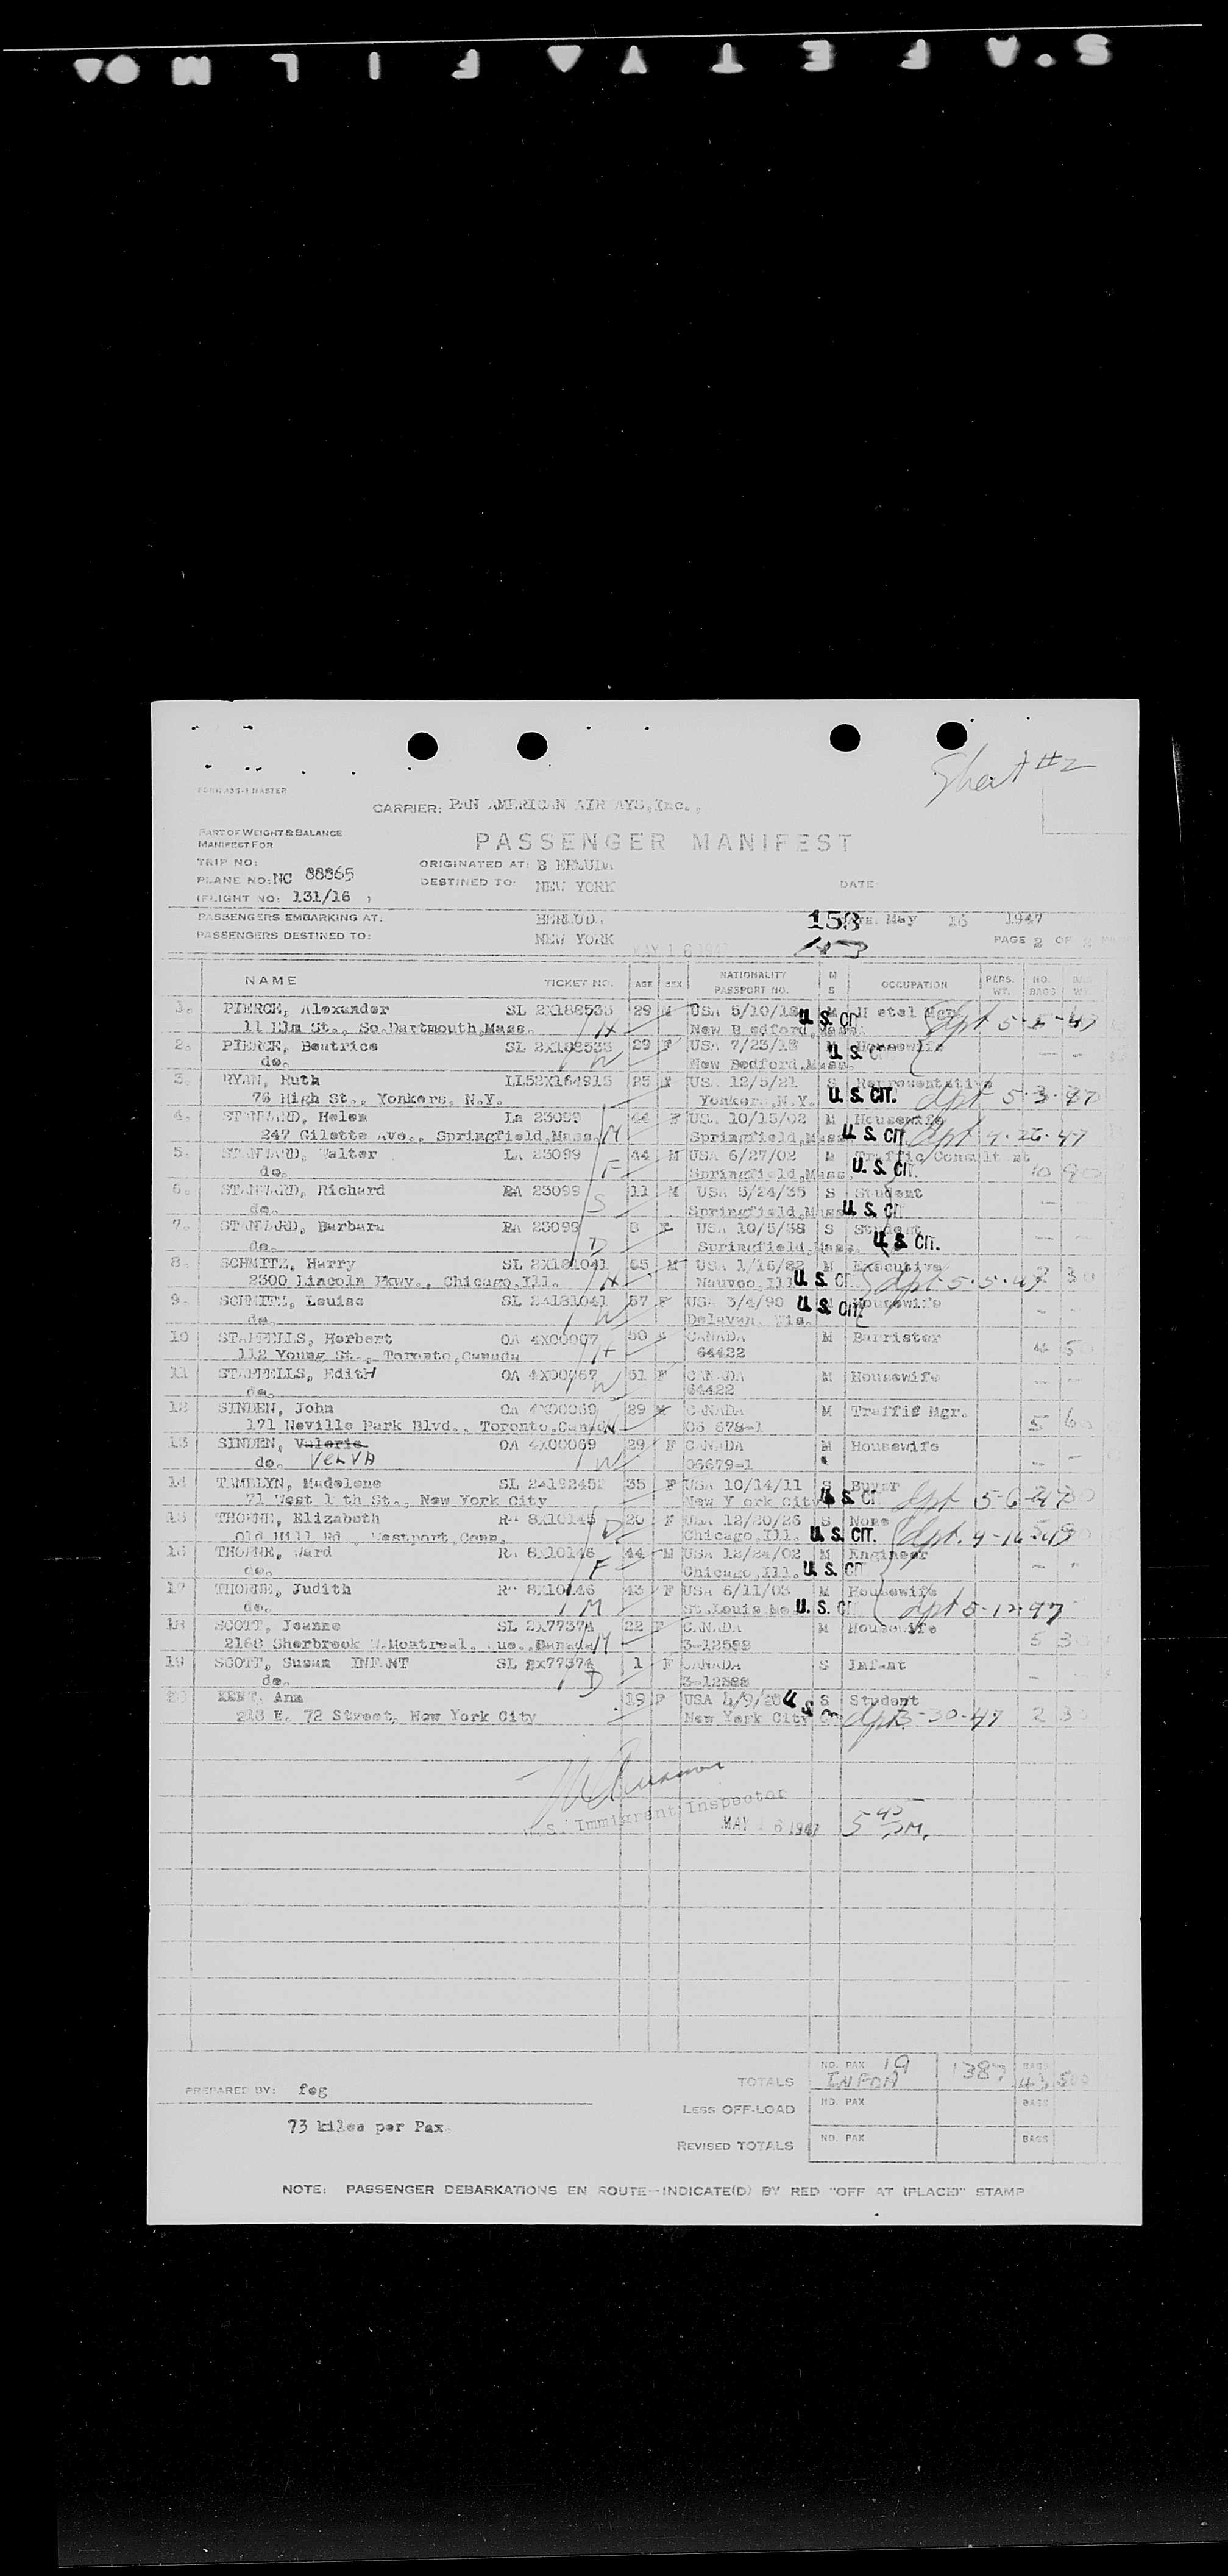 SAFETY FILM
Sheet #2
FORM 435-1 MASTER
CARRIER: PAN AMERICAN AIR AYS,Inc.,
PART OF WEIGHT & BALANCE
MANIFEST FOR
PASSENGER MANIFEST
TRIP NO:
ORIGINATED AT: B ERMUDA
PLANE NO: NC 88865
DESTINED TO: NEW YORK
DATE
(FLIGHT NO: 131/16 )
PASSENGERS EMBARKING AT: BERMUDA 158 DATE. May 16 1947
PASSENGERS DESTINED TO: NEW YORK MAY 16 1947 PAGE 2 OF 2
NAME TICKET NO. AGE SEX NATIONALITY PASSPORT NO. M S OCCUPATION PERS. WT. NO. BAGS BAG WT.
1. PIERCE, Alexander SL 2X188533 29 M USA 5/10/18 U.S. CIT M H otel Mgr. dpt 5-5-47
11 Elm St., So.Dartmouth,Mass. H New B edford,Mass.
2. PIERCE, Beatrice SL 2X188533 29 F USA 7/23/18 U.S. C M Housewife
do. W New Bedford,Mass.
3. RYAN, Ruth LL52X164915 25 F USA 12/5/21 S Representative
76 High St., Yonkers, N.Y. Yonkers,N.Y. U.S. CIT. dpt 5-3-47
4. STANNARD, Helen LA 23099 44 F USA 10/15/02 M Housewife
247 Gilette Ave., Springfield,Mass. M Springfield,Mass. U.S. CIT dpt 4-26-47
5. STANNARD, Walter LA 23099 44 M USA 6/27/02 M Traffic Consult nt
do. F Springfield,Mass. U.S. CIT. 10 90
6. STANNARD, Richard RA 23099 11 M USA 5/24/35 S Student
do. S Springfield,Mass. U.S. CIT
7. STANNARD, Barbara RA 23099 8 F USA 10/5/38 S Student
do. D Springfield,Mass. U.S. CIT.
8. SCHMITZ, Harry SL 2X181041 65 M USA 1/16/82 M Executive
2300 Lincoln Pkwy., Chicago,Ill. H Nauvoo,Ill. U.S. CIT dpt 5-5-47 30
9. SCHMITZ, Louise SL 2X181041 57 F USA 3/4/90 U.S. CIT. Housewife
do. W Delavan, Wis.
10 STAPPELLS, Herbert OA 4X00067 50 M CANADA M Barrister
112 Young St., Toronto,Canada H 64422
11 STAPPELLS, EditH OA 4X00067 51 F CANADA M Housewife
do. W 64422
12 SINDEN, John OA 4X00069 29 M CANADA M Traffic Mgr.
171 Neville Park Blvd., Toronto,Canada H 06 678-1 5 6
13 SINDEN, Valerie OA 4X00069 29 F CANADA M Housewife
do. VELVA W 06679-1
14 TAMBLYN, Madelene SL 2X192452 35 F USA 10/14/11 S Buyer
71 West 1 th St., New York City New Y ork City U.S. CIT dpt 5-6-47
15 THORNE, Elizabeth 8X10146 20 F USA 12/20/26 S None
Old Hill Rd., Westport,Conn. D Chicago,Ill. U.S. CIT. dpt. 4-16-47
16 THORNE, Ward 8X10146 44 M USA 12/24/02 M Engineer
do. F Chicago,Ill. U.S. CIT
17 THORNE, Judith 8X10146 43 F USA 6/11/03 M Housewife
do. M St.Louis Mo. U.S. CIT dpt 5-12-47
18 SCOTT, Jeanne SL 2X77374 22 F CANADA M Housewife
2168 Sherbrook W.Montreal, Que.,Canada M 3-12588 5 30
19 SCOTT, Susan INFANT SL 2x77374 1 F CANADA S Infant
do. D 3-12588
20 KENT, Ann 19 F USA 4/9/28 U S S Student
213 E. 72 Street, New York City New York City dpt 3-30-47 2 3
U.S. Immigrant Inspector
MAY 16 1947 5 45 PM.
TOTALS NO. PAX 19 INFAN 1387 BAGS
PREPARED BY: feg
LESS OFF-LOAD NO. PAX BAGS
73 kilos per Pax.
REVISED TOTALS NO. PAX BAGS
NOTE: PASSENGER DEBARKATIONS EN ROUTE--INDICATE(D) BY RED "OFF AT (PLACE)" STAMP